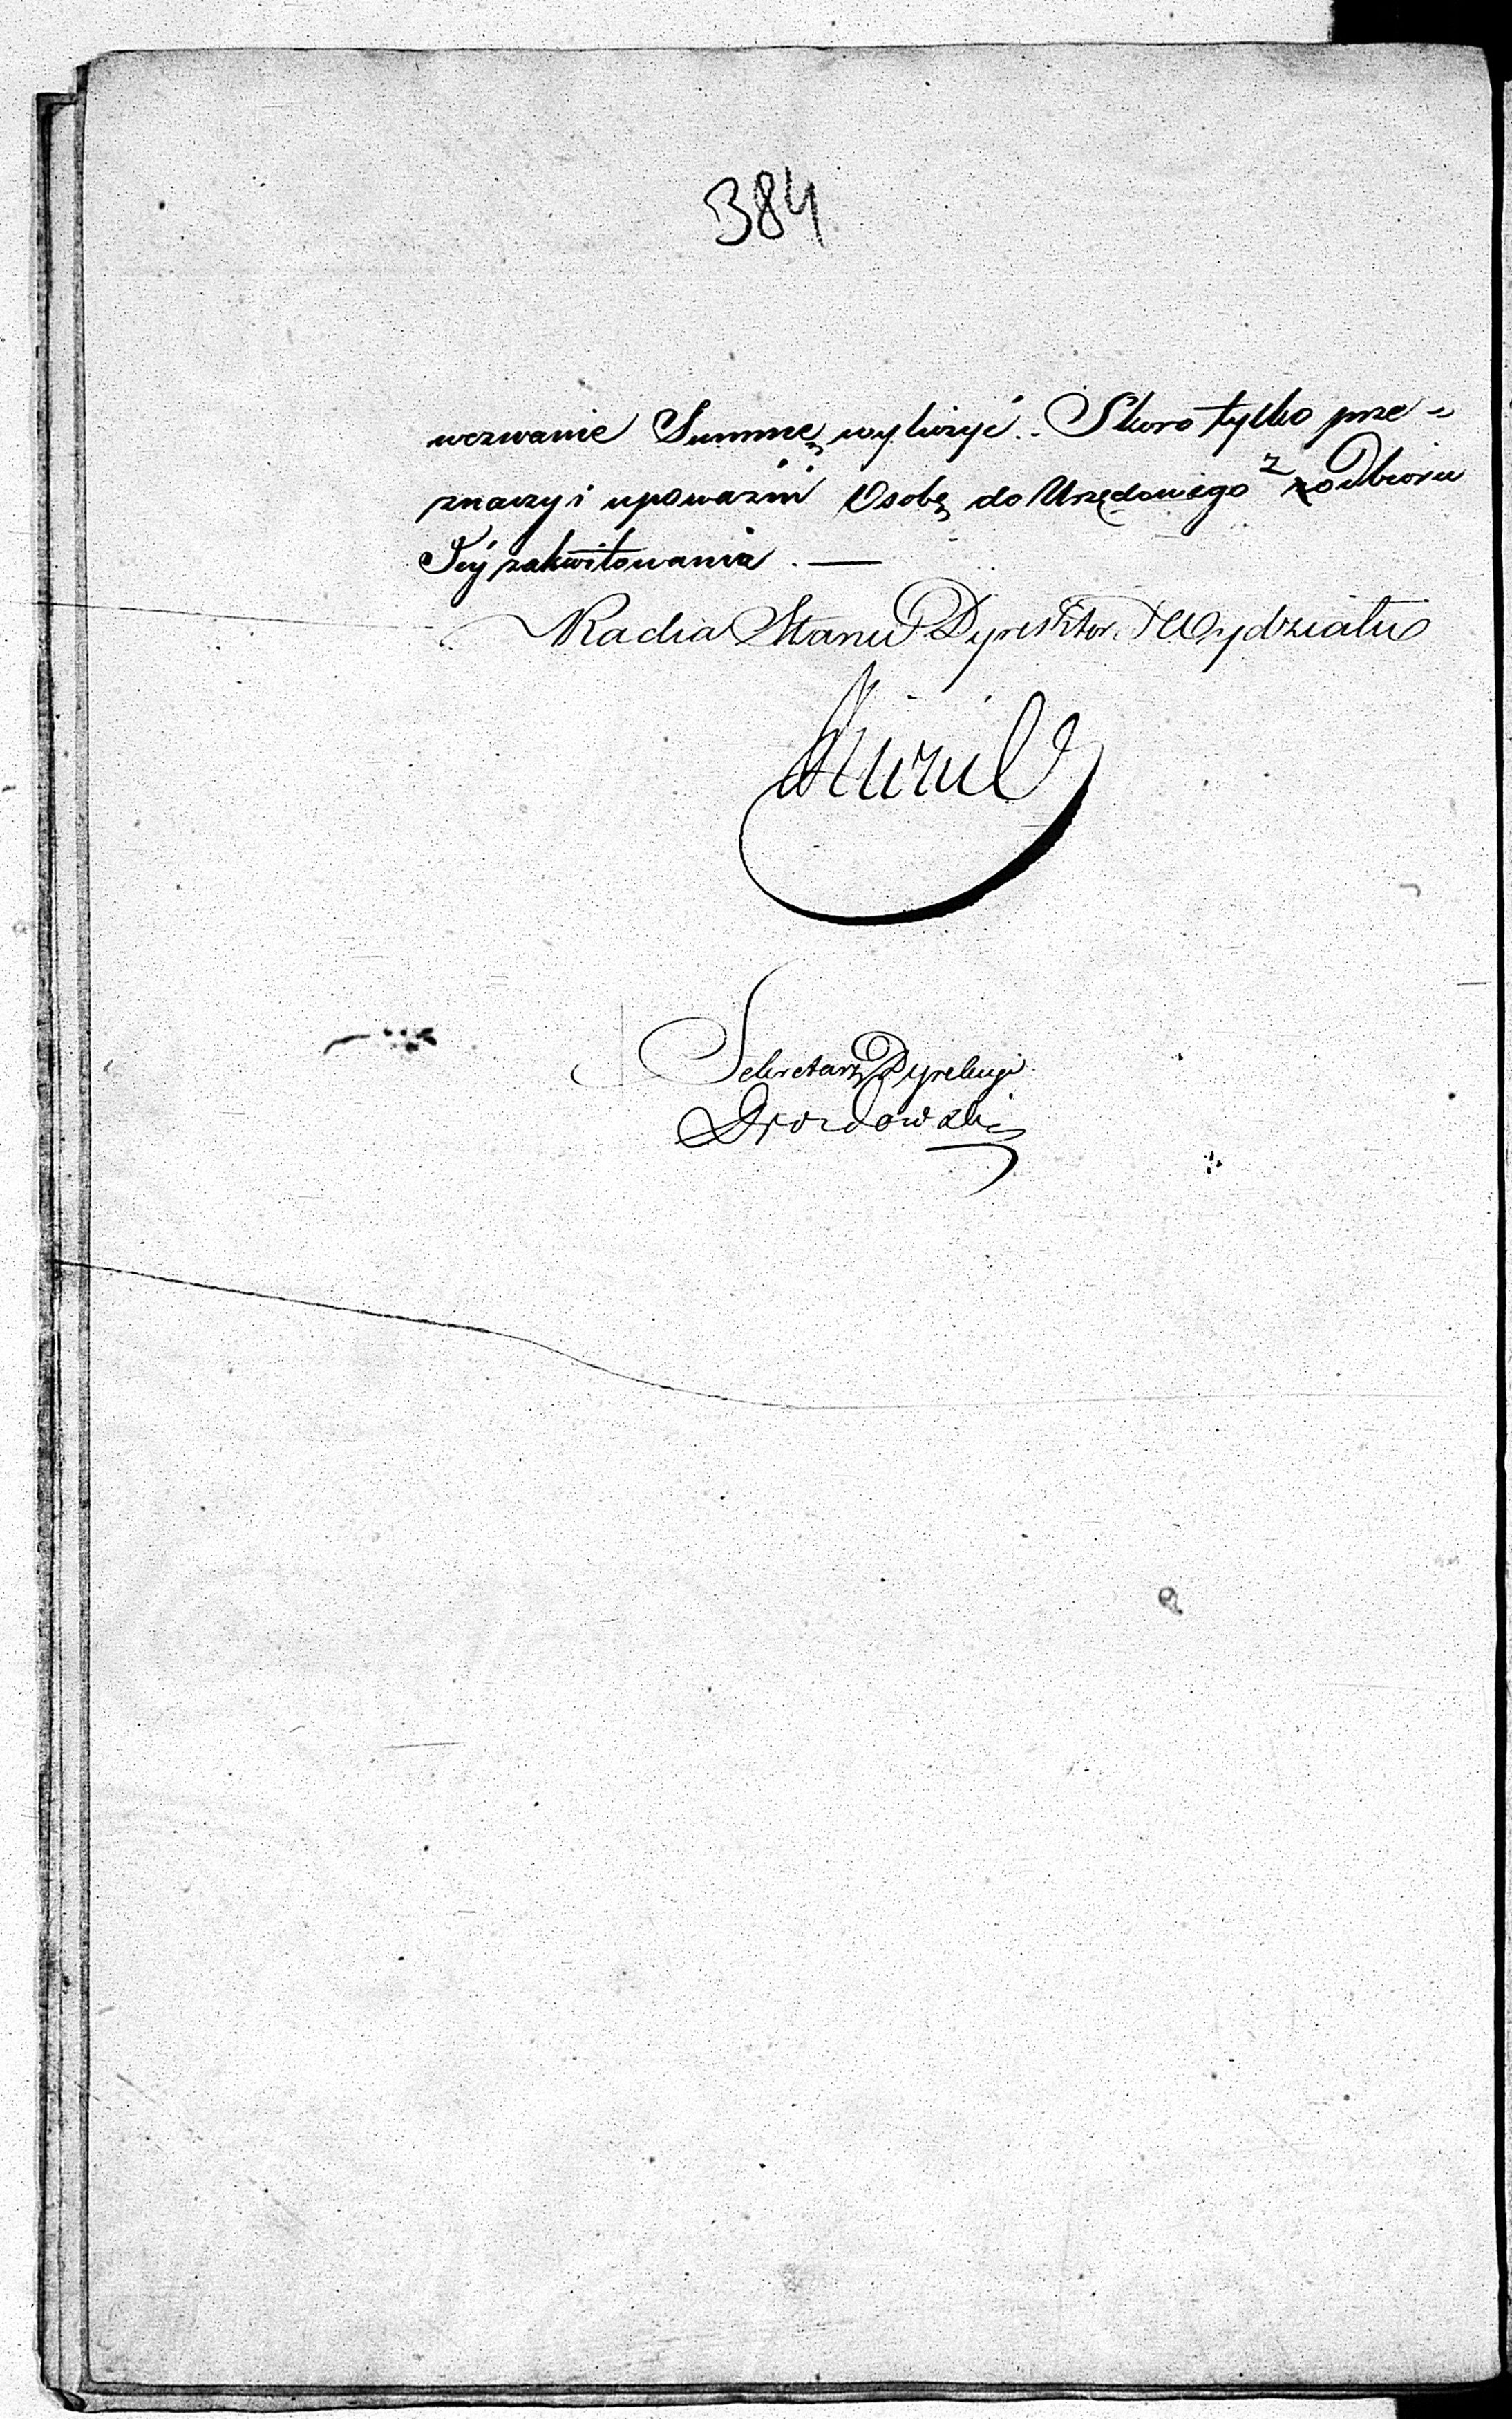 384
wezwanie Summę wyliczyć. Skoro tylko prze-
znaczy i upoważni Osobę do Urzędowego z odbioru
Jéy zakwitowania. —
Radca Stanu Dyrektor Wydziału
Sekretarz Dyrekcyi
Drozdowski